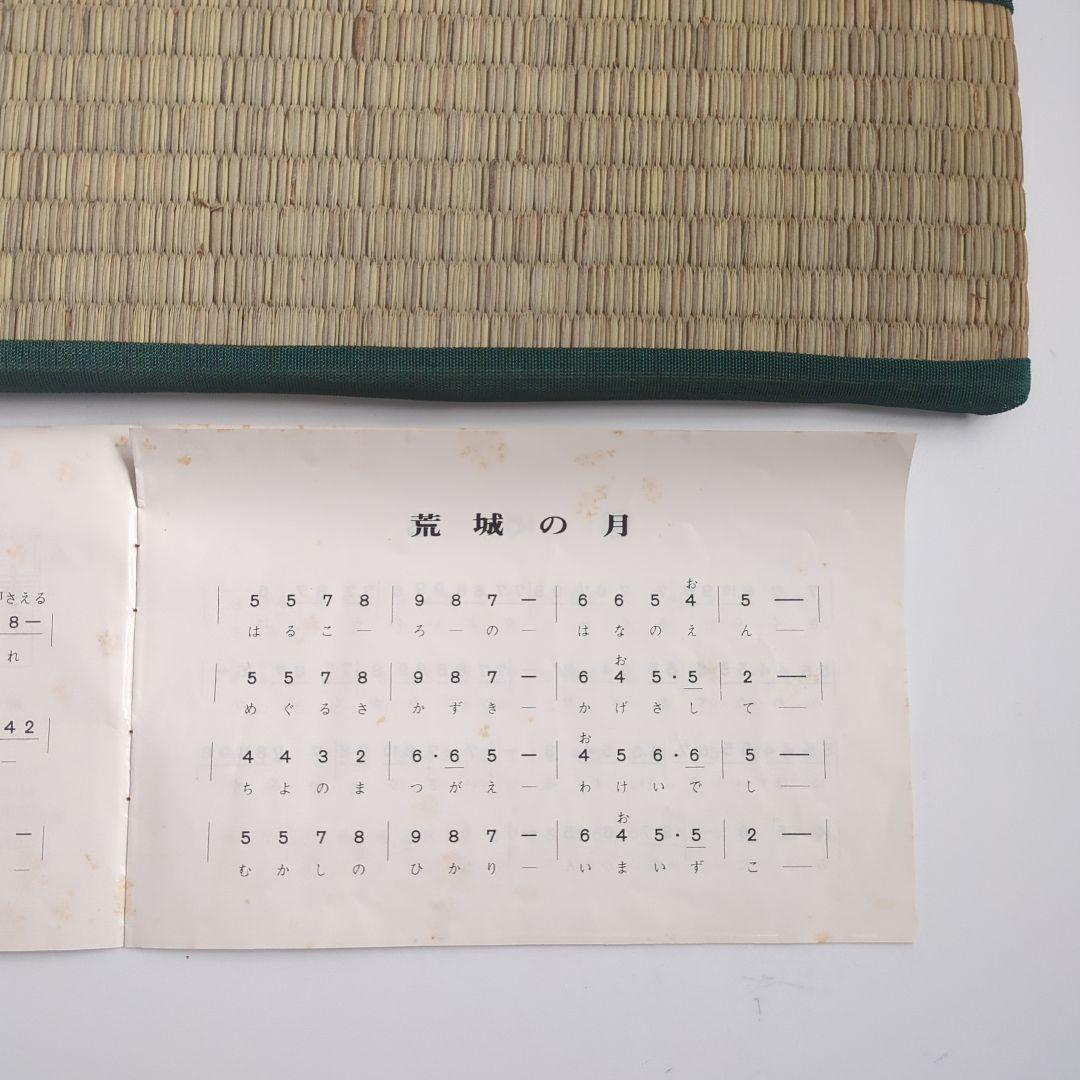 荒城の月
さえる
8 —
れ
4 2
—
—
—
お
| 5 5 7 8 | 9 8 7 — | 6 6 5 4 | 5 — |
はるこ—ろ—の—はなのえん—
お
| 5 5 7 8 | 9 8 7 — | 6 4 5・5 | 2 — |
めぐるさかずき—かげさして—
お
| 4 4 3 2 | 6・6 5 — | 4 5 6・6 | 5 — |
ちよのまつがえ—わけいでし—
お
| 5 5 7 8 | 9 8 7 — | 6 4 5・5 | 2 — |
むかしのひかり—いまいずこ—